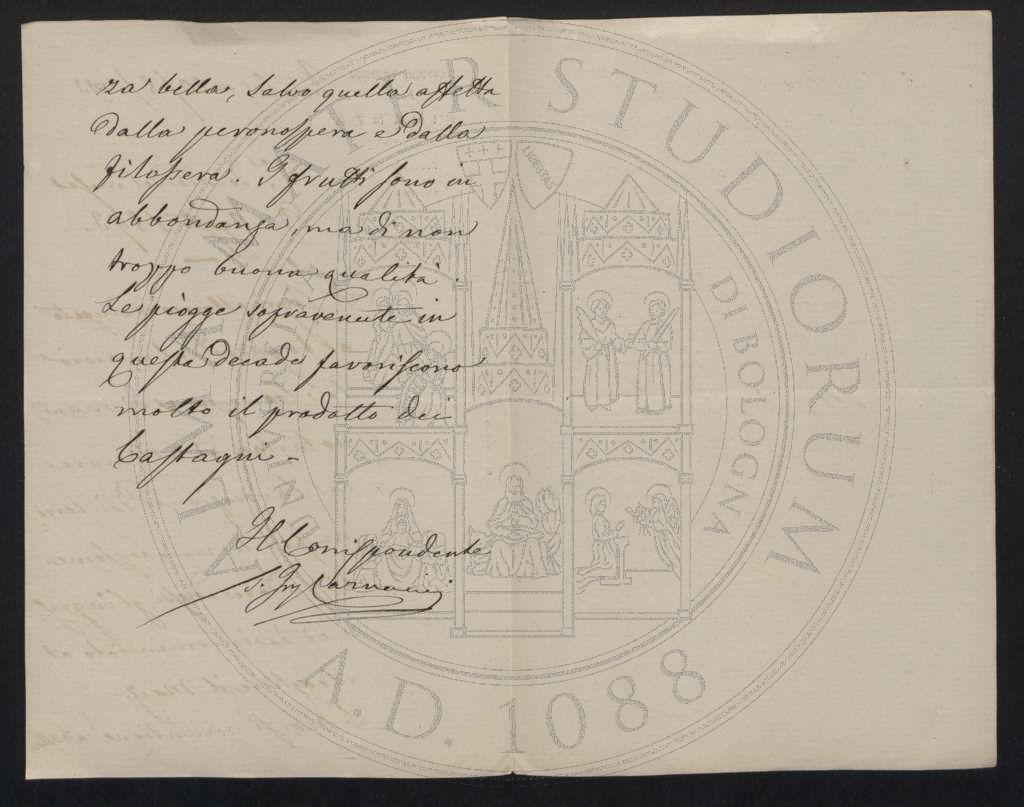 za bella, salvo quella affetta
dalla peronospera e dalla
filossera. I frutti sono in
abbondanza, ma di non
troppo buona qualità.
Le piogge sopravenute in
questa decade favoriscono
molto il prodotto dei
Castagni -
Il Corrispondente
ALMA MATER STUDIORUM
LIBERTAS
DI BOLOGNA
A.D. 1088